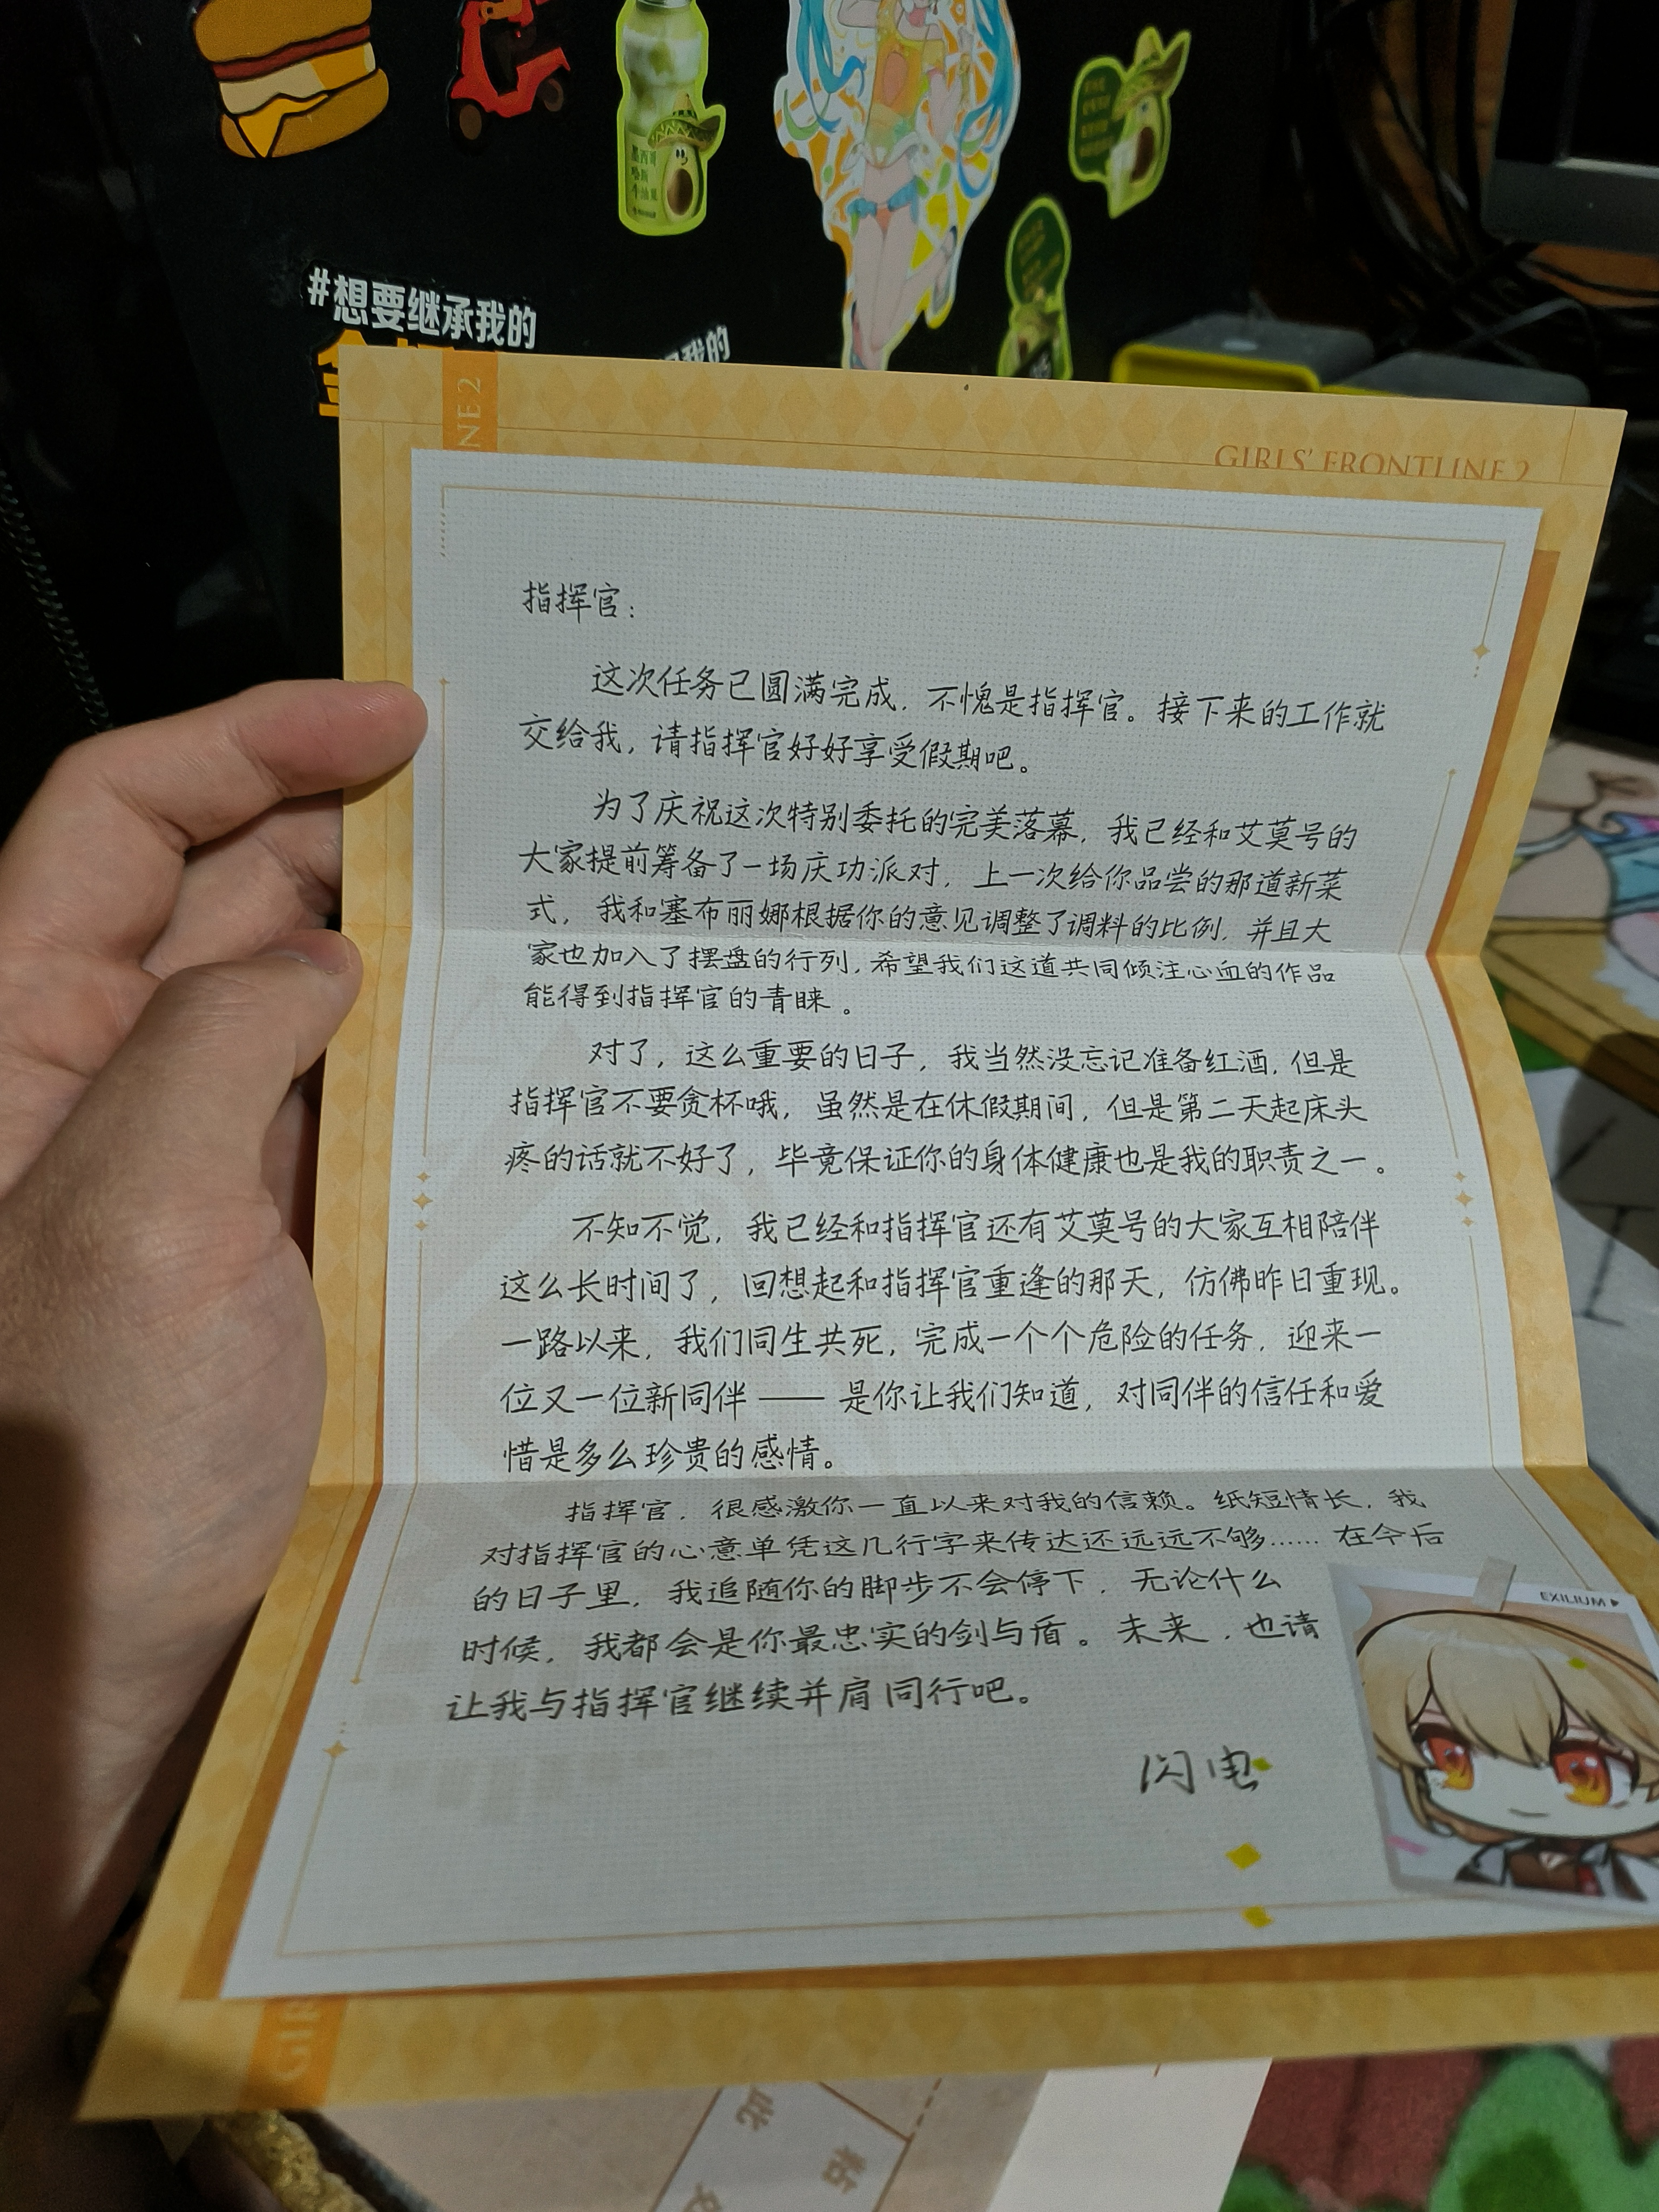 #想要继承我的
我的
墨西哥
牛油果
NE 2
GIRLS' FRONTLINE 2
指挥官：
这次任务已圆满完成，不愧是指挥官。接下来的工作就
交给我，请指挥官好好享受假期吧。
为了庆祝这次特别委托的完美落幕，我已经和艾莫号的
大家提前筹备了一场庆功派对，上一次给你品尝的那道新菜
式，我和塞布丽娜根据你的意见调整了调料的比例，并且大
家也加入了摆盘的行列，希望我们这道共同倾注心血的作品
能得到指挥官的青睐。
对了，这么重要的日子，我当然没忘记准备红酒，但是
指挥官不要贪杯哦，虽然是在休假期间，但是第二天起床头
疼的话就不好了，毕竟保证你的身体健康也是我的职责之一。
不知不觉，我已经和指挥官还有艾莫号的大家互相陪伴
这么长时间了，回想起和指挥官重逢的那天，仿佛昨日重现。
一路以来，我们同生共死，完成一个个危险的任务，迎来一
位又一位新同伴——是你让我们知道，对同伴的信任和爱
惜是多么珍贵的感情。
指挥官，很感激你一直以来对我的信赖。纸短情长，我
对指挥官的心意单凭这几行字来传达还远远不够……在今后
的日子里，我追随你的脚步不会停下，无论什么
时候，我都会是你最忠实的剑与盾。未来，也请
让我与指挥官继续并肩同行吧。
EXILIUM
闪电
GIR
此
粘